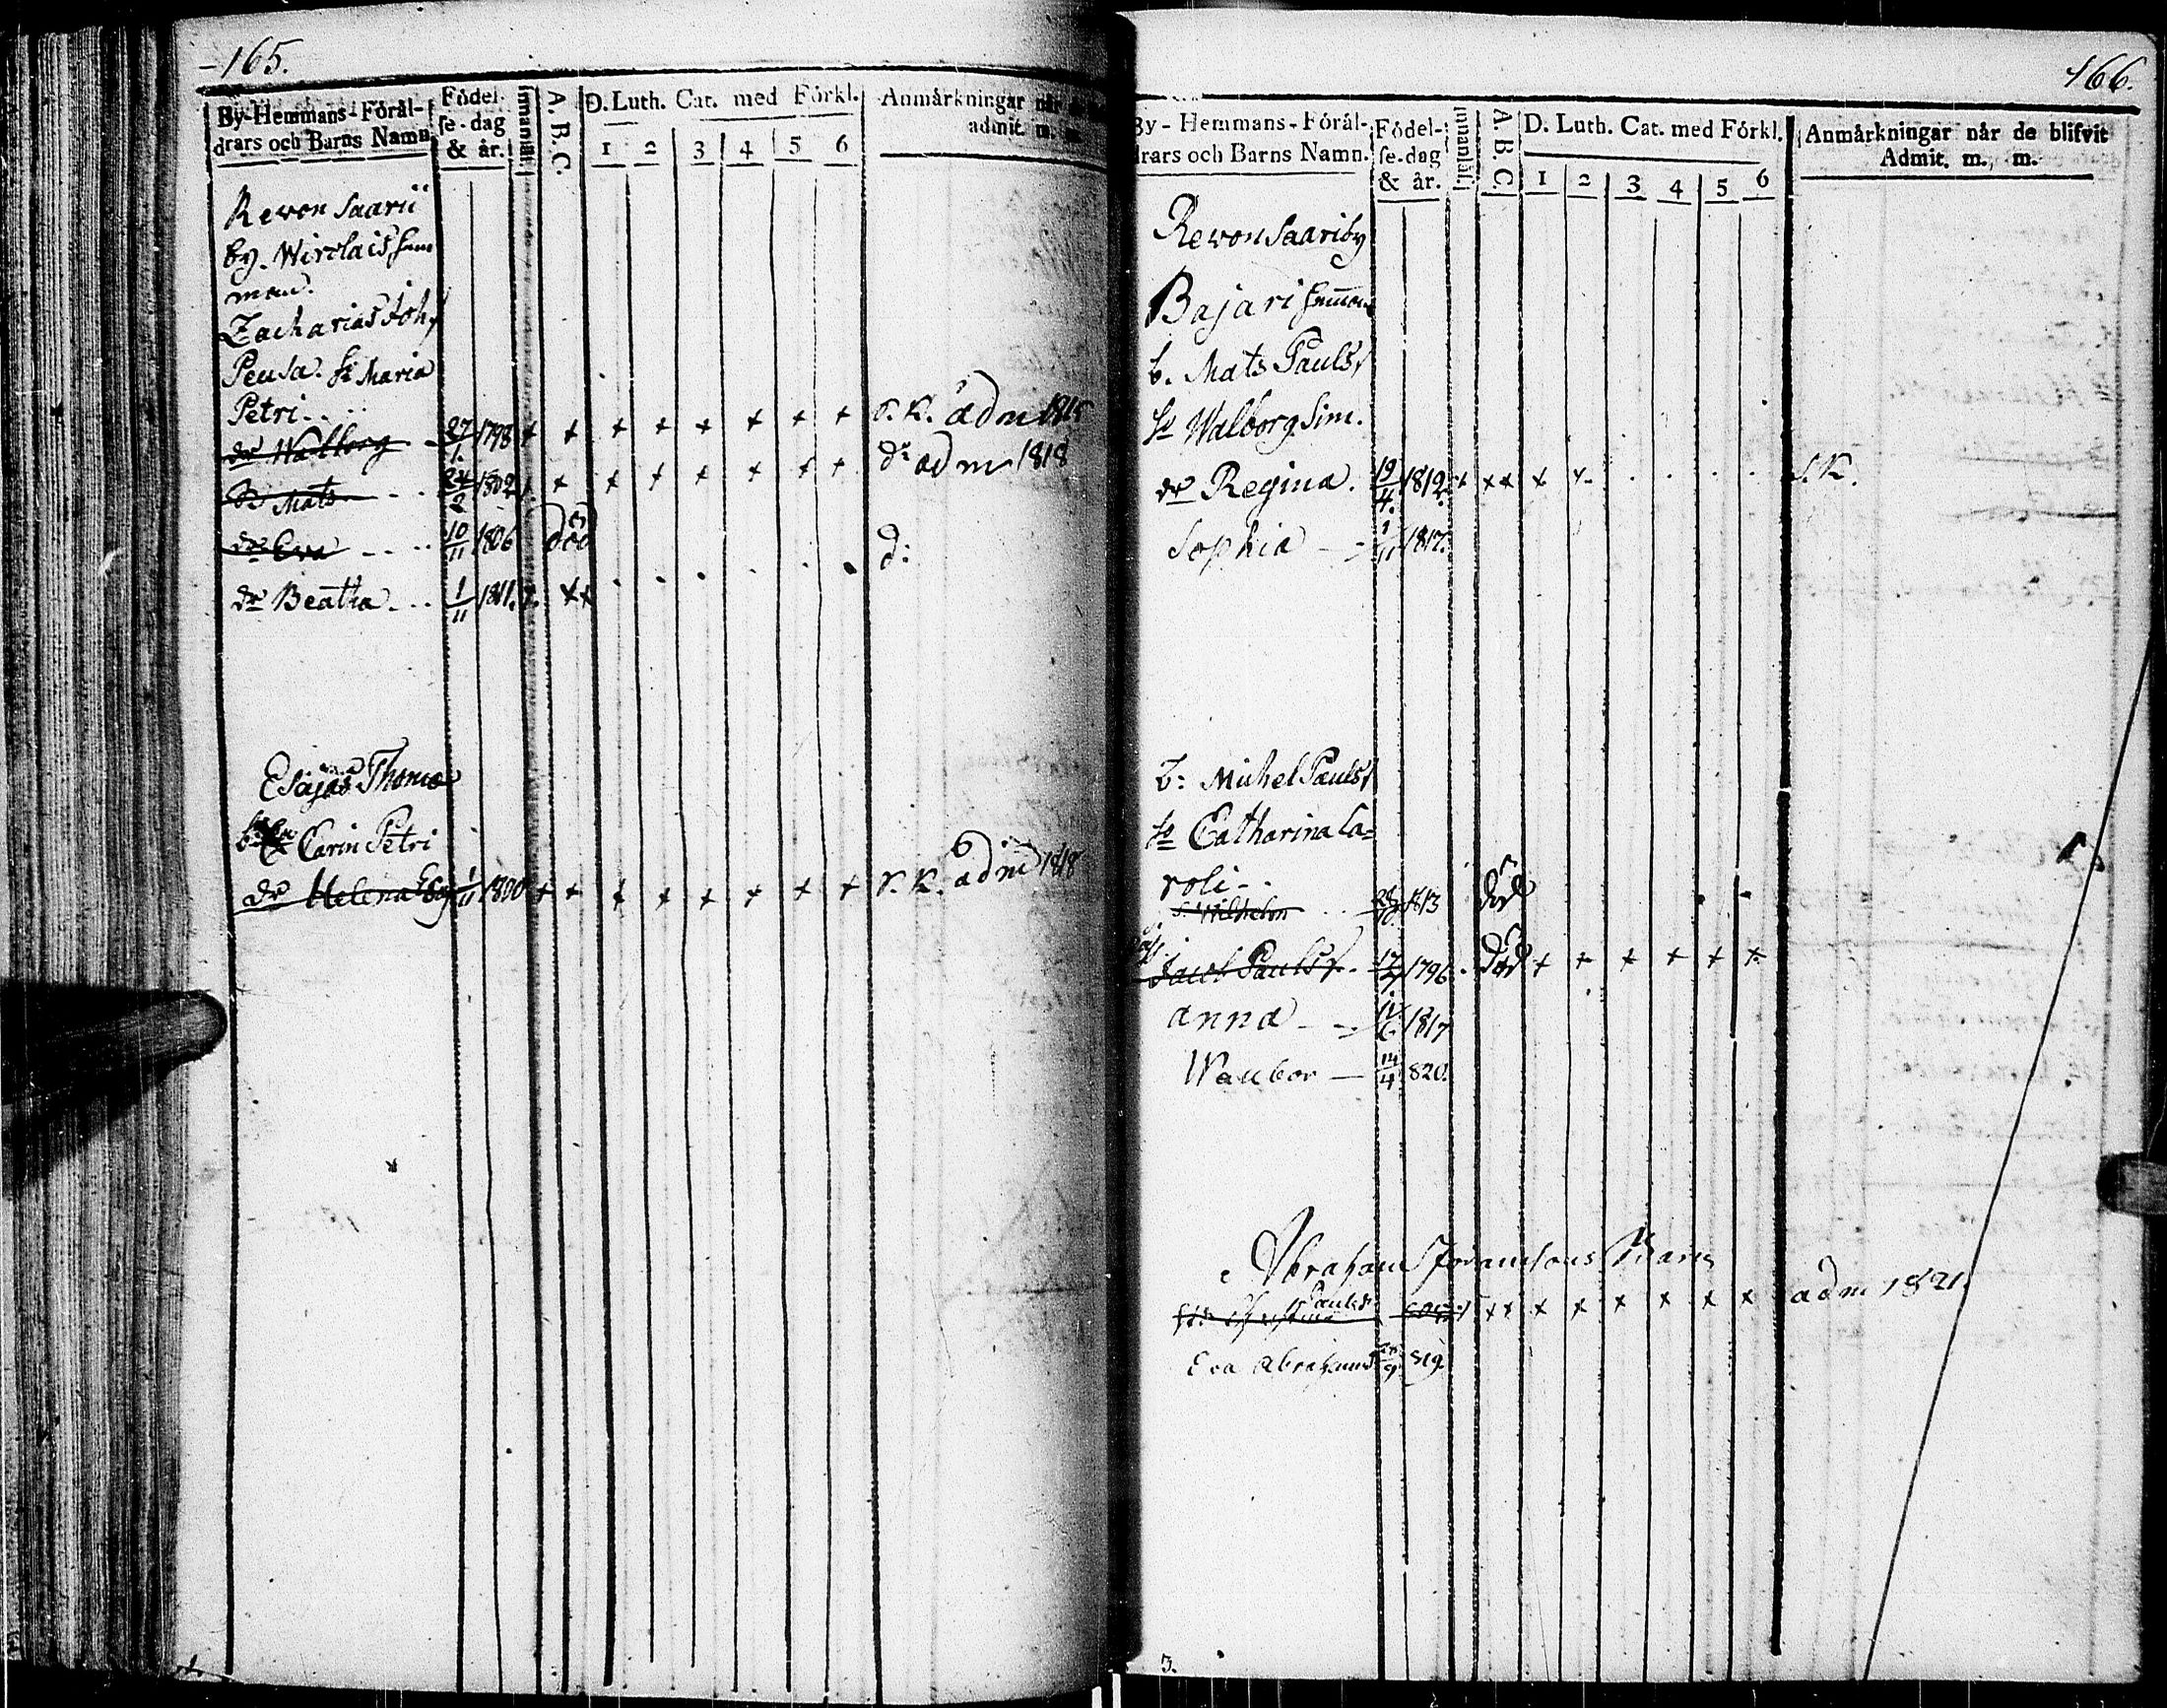 165.
By-Hemmans-Föräl-
drars och Barns Namn.
Födel-
se-dag
& år.
Innanläs.
A. B. C.
D. Luth. Cat. med Förkl.
1 2 3 4 5 6
Anmärkningar när
admit. m. m.
Revon Saari
by. Wirolais hem
man.
Zacharias Joh.
Peusa. h. Maria
Petri
dr Walborg 27/1 1798 + + + + + + + + S. K. adm 1815
s. Mats 24/2 1802 + + + + + + + d:o adm 1818
dr Eva 10/11 1806 död d:
dr Beatha 1/11 1811. ++
Esajas Thomæ
Carin Petri
dr Helena Esaj 1/11 1800 + + + + + + + + S. K. adm 1818
166.
By-Hemmans-Föräl-
drars och Barns Namn.
Födel-
se-dag
& år.
Innanläs.
A. B. C.
D. Luth. Cat. med Förkl.
1 2 3 4 5 6
Anmärkningar när de blifvit
Admit. m., m.
Revon Saari by
Bajari hemman
b. Mats Pauls
h. Walborg Sim.
dr Regina. 19/4 1812. + ++ + + S. K.
Sophia 1/11 1817.
b: Michel Pauls
h. Catharina Ca=
roli
s. Wilhelm 1813 död
Pauls. 17/7 1796 död + + + + + +
Anna 1817
Waubor 14/4 820.
Abraham Joransons Maria
Pauls ++ + + + + + + adm 1821.
Eva Abrahams 819.
3.